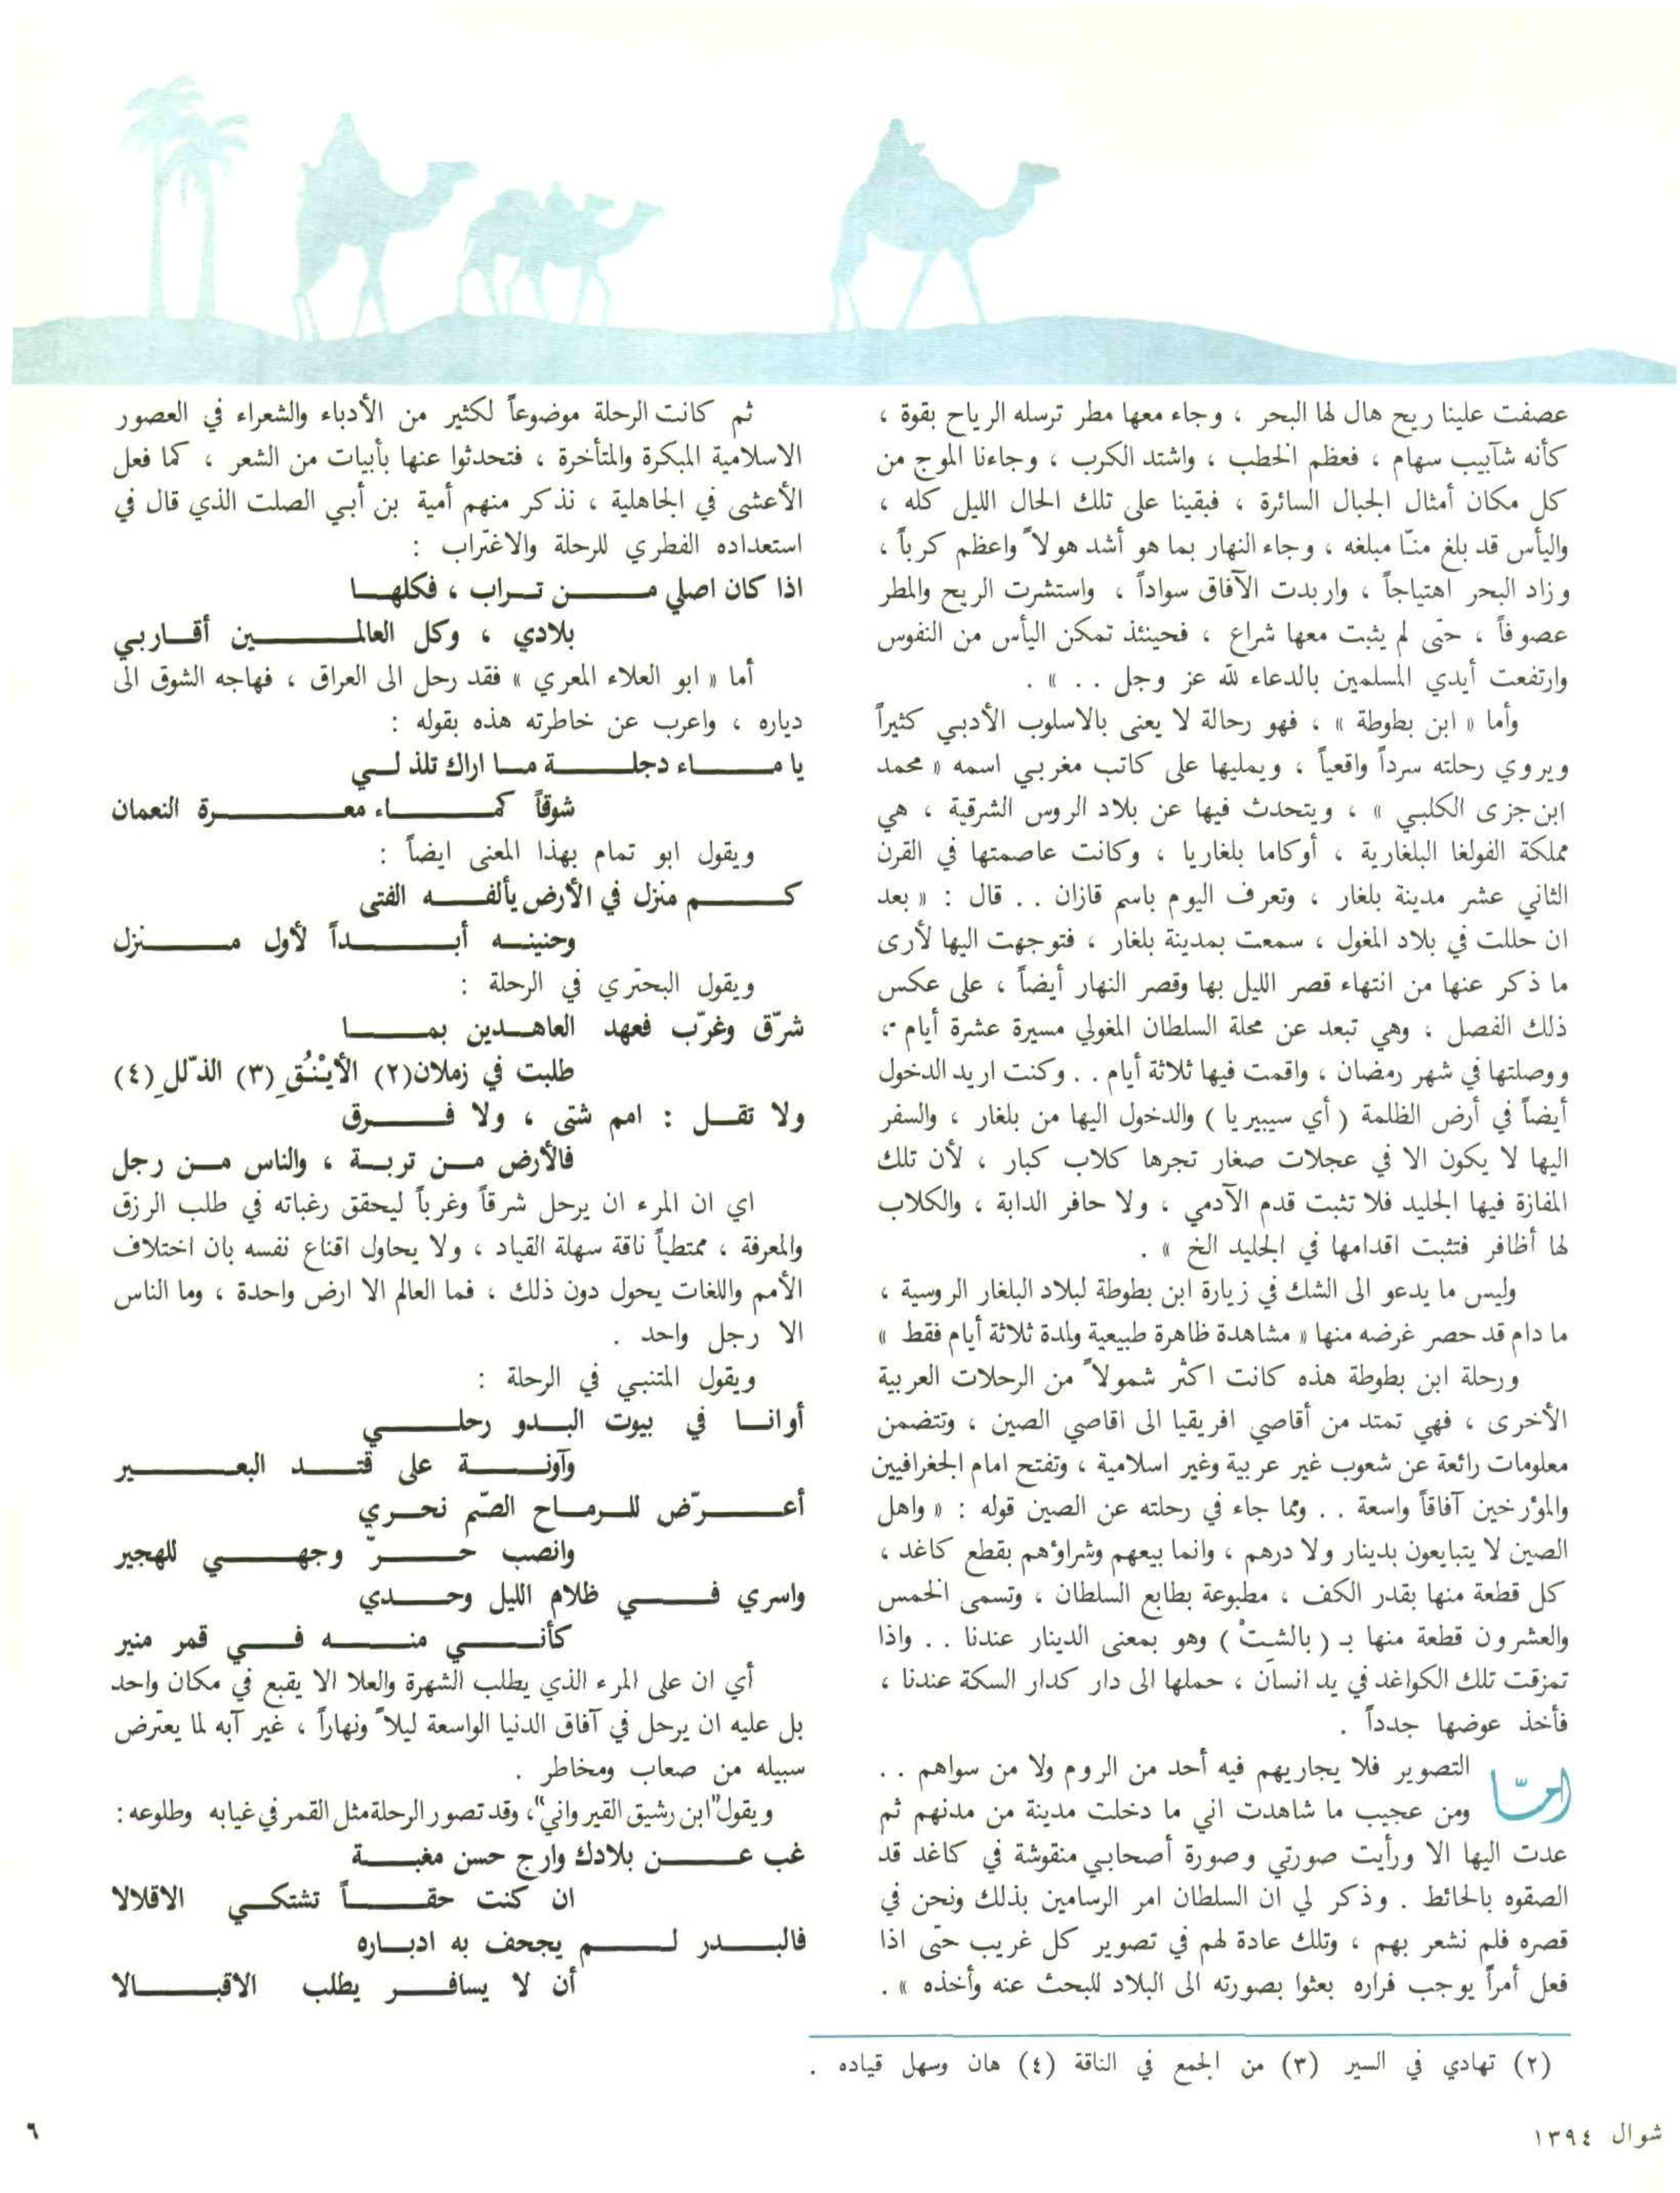 عصفت علينا ريح هال لها البحر ، وجاء معها مطر ترسله الرياح بقوة ،
كأنه شآبيب سهام ، فعظم الخطب ، واشتد الكرب ، وجاءنا الموج من
كل مكان أمثال الجبال السائرة ، فبقينا على تلك الحال الليل كله ،
واليأس قد بلغ منّا مبلغه ، وجاء النهار بما هو أشد هولاً واعظم كرباً ،
وزاد البحر اهتياجاً ، واربدت الآفاق سواداً ، واستشرت الريح والمطر
عصوفاً ، حتى لم يثبت معها شراع ، فحينئذ تمكن اليأس من النفوس
وارتفعت أيدي المسلمين بالدعاء لله عز وجل . . » .
وأما « ابن بطوطة » ، فهو رحالة لا يعنى بالاسلوب الأدبي كثيراً
ويروي رحلته سرداً واقعياً ، ويمليها على كاتب مغربي اسمه « محمد
ابن جزى الكلبي » ، ويتحدث فيها عن بلاد الروس الشرقية ، هي
مملكة الفولغا البلغارية ، أوكاما بلغاريا ، وكانت عاصمتها في القرن
الثاني عشر مدينة بلغار ، وتعرف اليوم باسم قازان . . قال : « بعد
ان حللت في بلاد المغول ، سمعت بمدينة بلغار ، فتوجهت اليها لأرى
ما ذكر عنها من انتهاء قصر الليل بها وقصر النهار أيضاً ، على عكس
ذلك الفصل ، وهي تبعد عن محلة السلطان المغولي مسيرة عشرة أيام ،
ووصلتها في شهر رمضان ، واقمت فيها ثلاثة أيام . . وكنت اريد الدخول
أيضاً في أرض الظلمة ( أي سيبيريا ) والدخول اليها من بلغار ، والسفر
اليها لا يكون الا في عجلات صغار تجرها كلاب كبار ، لأن تلك
المفازة فيها الجليد فلا تثبت قدم الآدمي ، ولا حافر الدابة ، والكلاب
لها أظافر فتثبت اقدامها في الجليد الخ » .
وليس ما يدعو الى الشك في زيارة ابن بطوطة لبلاد البلغار الروسية ،
ما دام قد حصر غرضه منها « مشاهدة ظاهرة طبيعية ولمدة ثلاثة أيام فقط »
ورحلة ابن بطوطة هذه كانت اكثر شمولاً من الرحلات العربية
الأخرى ، فهي تمتد من أقاصي افريقيا الى اقاصي الصين ، وتتضمن
معلومات رائعة عن شعوب غير عربية وغير اسلامية ، وتفتح امام الجغرافيين
والمؤرخين آفاقاً واسعة . . ومما جاء في رحلته عن الصين قوله : « واهل
الصين لا يتبايعون بدينار ولا درهم ، وانما بيعهم وشراؤهم بقطع كاغد ،
كل قطعة منها بقدر الكف ، مطبوعة بطابع السلطان ، وتسمى الخمس
والعشرون قطعة منها بـ ( بالشِتْ ) وهو بمعنى الدينار عندنا . . واذا
تمزقت تلك الكواغد في يد انسان ، حملها الى دار كدار السكة عندنا ،
فأخذ عوضها جدداً .
امّا التصوير فلا يجاريهم فيه أحد من الروم ولا من سواهم . .
ومن عجيب ما شاهدت اني ما دخلت مدينة من مدنهم ثم
عدت اليها الا ورأيت صورتي وصورة أصحابي منقوشة في كاغد قد
الصقوه بالحائط . وذكر لي ان السلطان امر الرسامين بذلك ونحن في
قصره فلم نشعر بهم ، وتلك عادة لهم في تصوير كل غريب حتى اذا
فعل أمراً يوجب فراره بعثوا بصورته الى البلاد للبحث عنه وأخذه » .
ثم كانت الرحلة موضوعاً لكثير من الأدباء والشعراء في العصور
الاسلامية المبكرة والمتأخرة ، فتحدثوا عنها بأبيات من الشعر ، كما فعل
الأعشى في الجاهلية ، نذكر منهم أمية بن أبي الصلت الذي قال في
استعداده الفطري للرحلة والاغتراب :
اذا كان اصلي مـن تـراب ، فكلهـا
بلادي ، وكل العالمـين أقـاربي
أما « ابو العلاء المعري » فقد رحل الى العراق ، فهاجه الشوق الى
دياره ، واعرب عن خاطرته هذه بقوله :
يا مـاء دجلـة مـا اراك تلذ لـي
شوقاً كمـاء معـرة النعمان
ويقول ابو تمام بهذا المعنى ايضاً :
كـم منزل في الأرض يألفـه الفتى
وحنينـه أبـداً لأول مـنزل
ويقول البحتري في الرحلة :
شرّق وغرّب فعهد العاهـدين بمـا
طلبت في زملان(٢) الأيْنُقِ(٣) الذّللِ(٤)
ولا تقـل : امم شتى ، ولا فـرق
فالأرض مـن تربـة ، والناس مـن رجل
اي ان المرء ان يرحل شرقاً وغرباً ليحقق رغباته في طلب الرزق
والمعرفة ، ممتطياً ناقة سهلة القياد ، ولا يحاول اقناع نفسه بان اختلاف
الأمم واللغات يحول دون ذلك ، فما العالم الا ارض واحدة ، وما الناس
الا رجل واحد .
ويقول المتنبي في الرحلة :
أوانـا في بيوت البـدو رحلـي
وآونـة على قتـد البعـير
أعـرّض للـرمـاح الصّم نحـري
وانصب حـرّ وجهـي للهجير
واسري فـي ظلام الليل وحـدي
كأنـي منـه فـي قمر منير
أي ان على المرء الذي يطلب الشهرة والعلا الا يقبع في مكان واحد
بل عليه ان يرحل في آفاق الدنيا الواسعة ليلاً ونهاراً ، غير آبه لما يعترض
سبيله من صعاب ومخاطر .
ويقول"ابن رشيق القيرواني"، وقد تصور الرحلة مثل القمر في غيابه وطلوعه :
غب عـن بلادك وارج حسن مغبـة
ان كنت حقـاً تشتكـي الاقلالا
فالبـدر لـم يجحف به ادبـاره
أن لا يسافـر يطلب الاقبـالا
(٢) تهادي في السير (٣) من الجمع في الناقة (٤) هان وسهل قياده .
شوال ١٣٩٤
٦